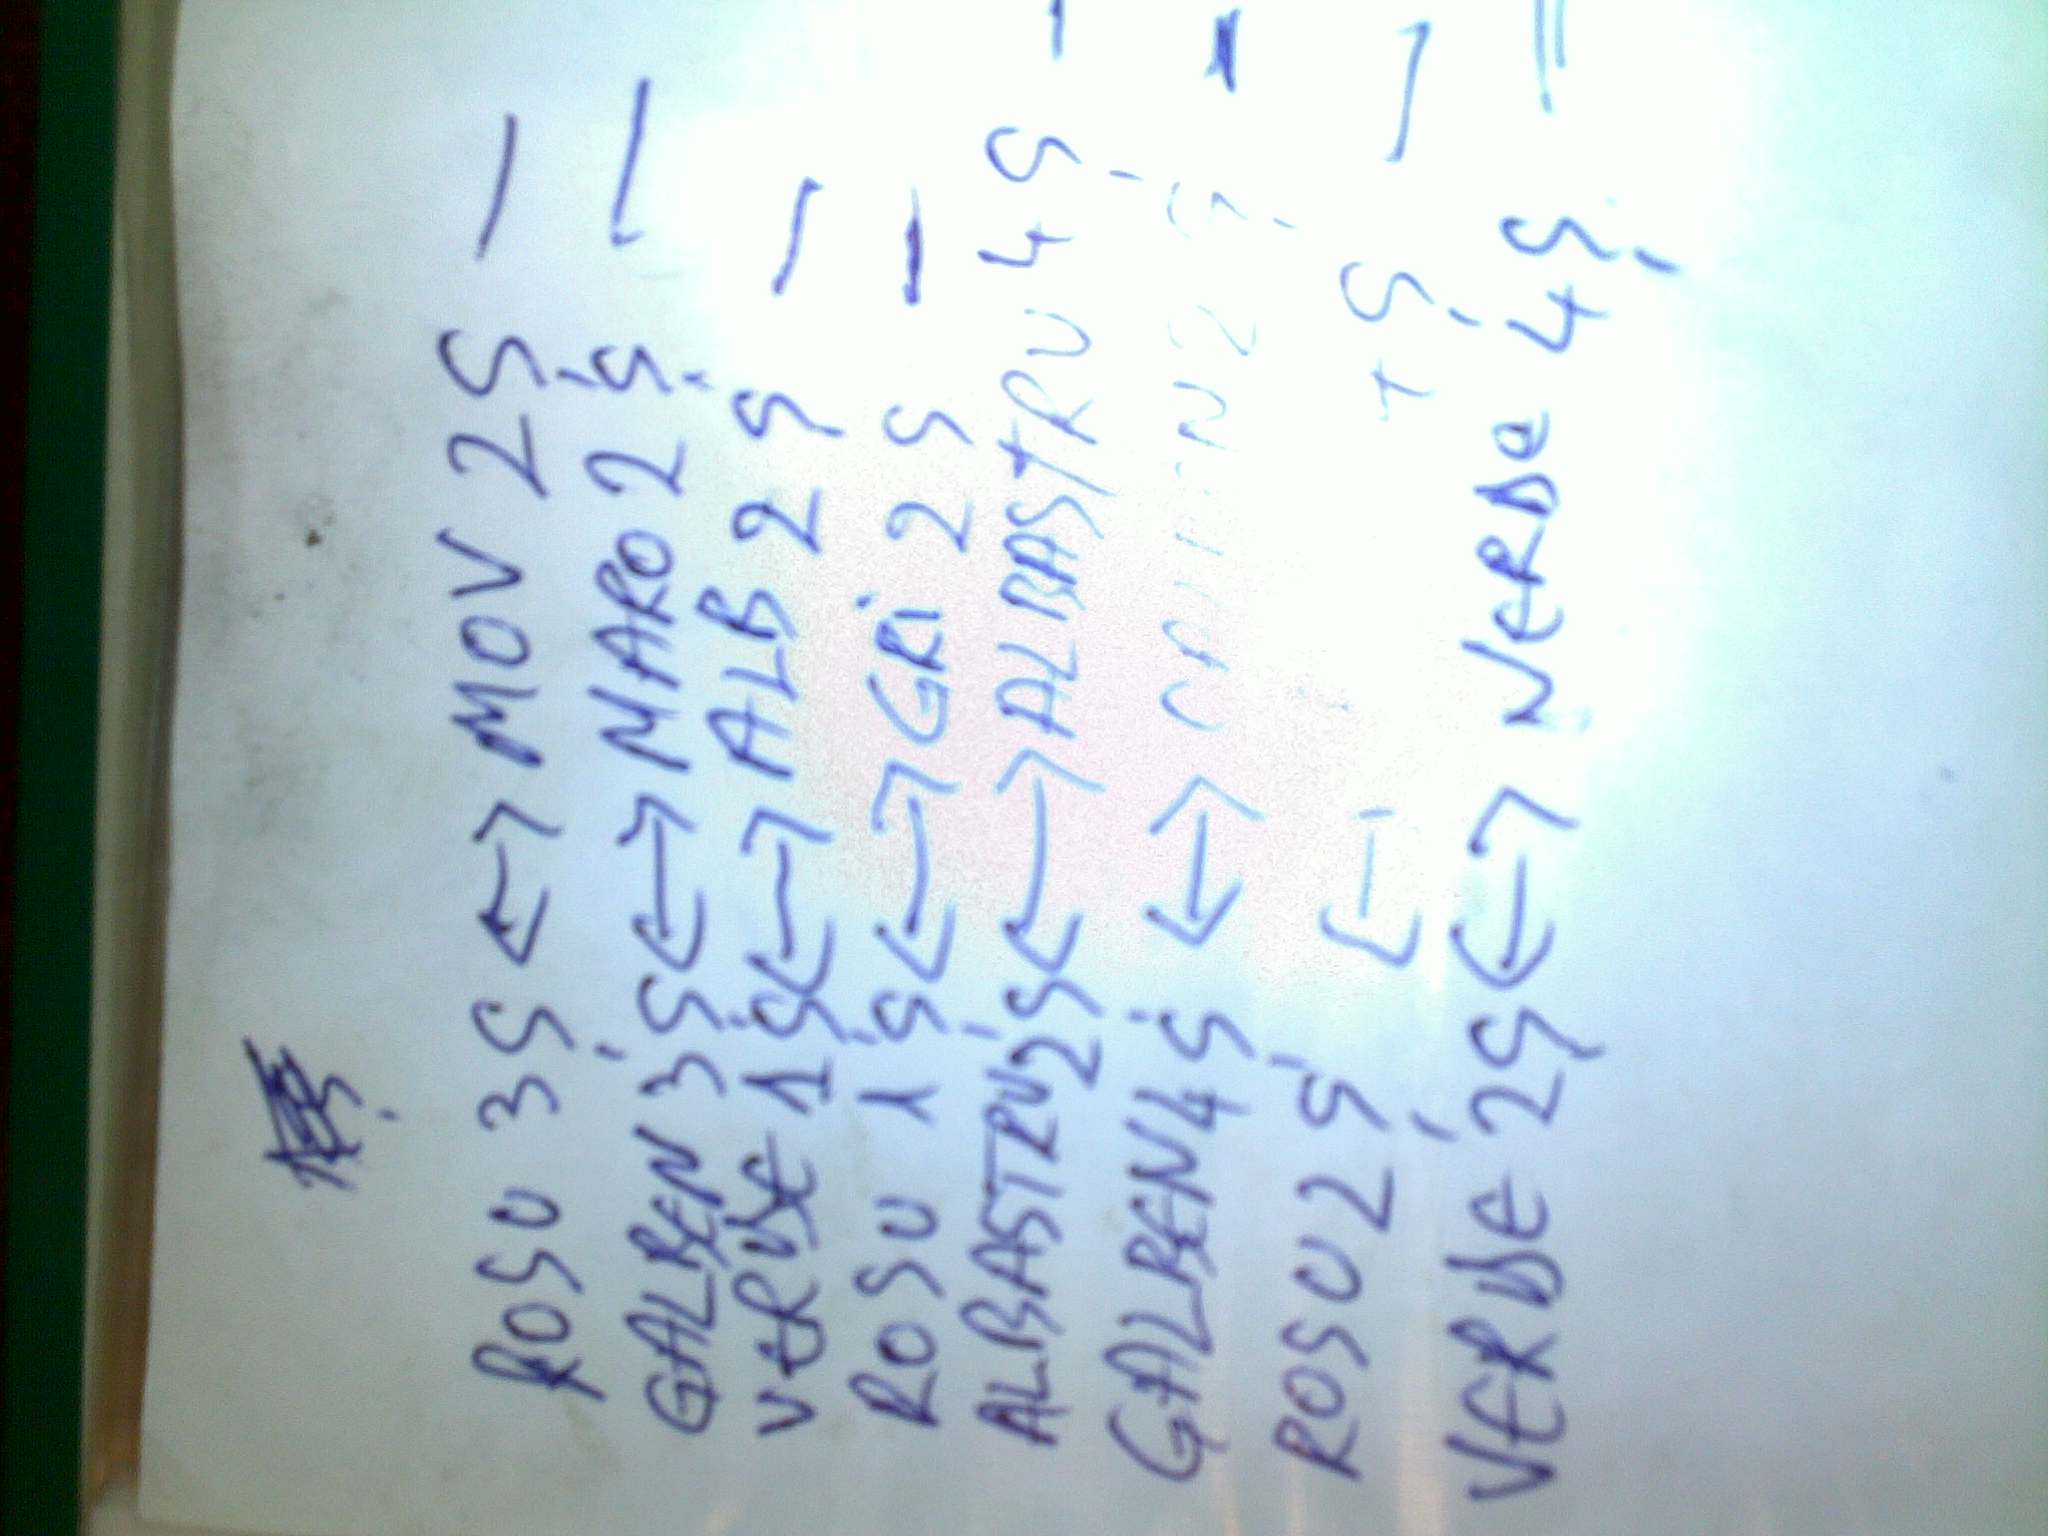 ROSU 3Ș ↔ MOV 2Ș —
GALBEN 3Ș ↔ MARO 2Ș —
VERDE 1Ș ↔ ALB 2Ș —
ROSU 1Ș ↔ GRI 2Ș —
ALBASTRU 2Ș ↔ ALBASTRU 4Ș —
GALBEN 4Ș ↔ 2Ș —
ROSU 2Ș ↔ 4Ș —
VERDE 2Ș ↔ VERDE 4Ș =